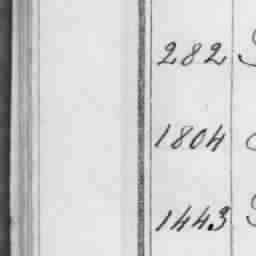 282
1804
1443